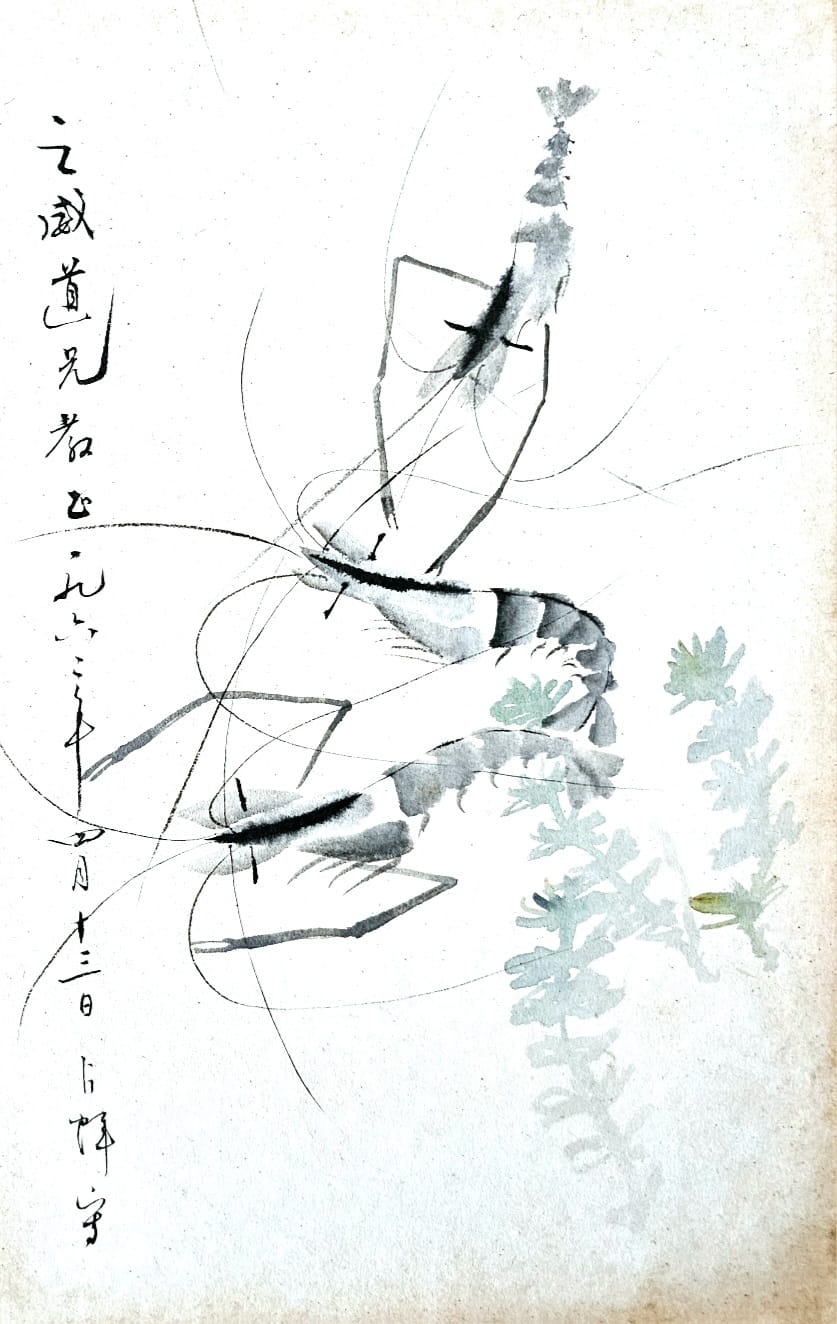 之威道兄教正一九六二年四月十三日 写